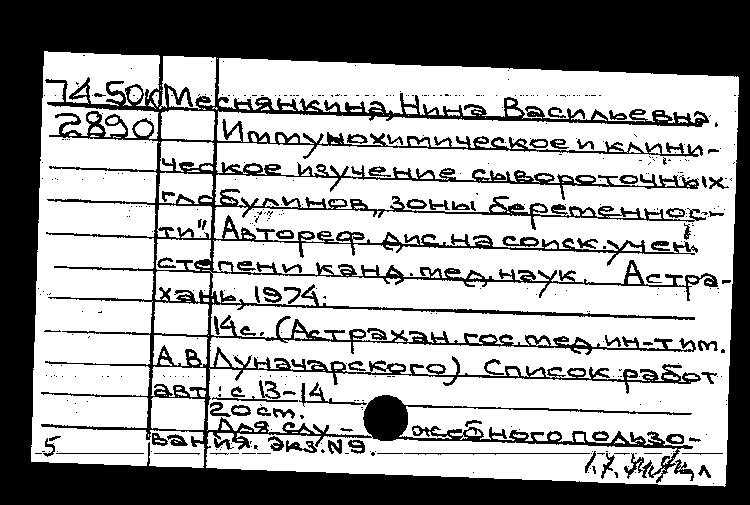 74-50к Меснянкина, Нина Васильевна.
2890 Иммунохимическое и клини-
ческое изучение сывороточных
глобулинов „зоны беременнос-
ти". Автореф. дис. на соиск. учен.
степени канд. мед. наук. Астра-
хань, 1974.
14с. (Астрахан. гос. мед. ин-т им.
А.В.Луначарского). Список работ
авт.: с.13-14.
20 ст.
Для слу- жебного пользо-
вания. Экз.N9.
5 1.7.